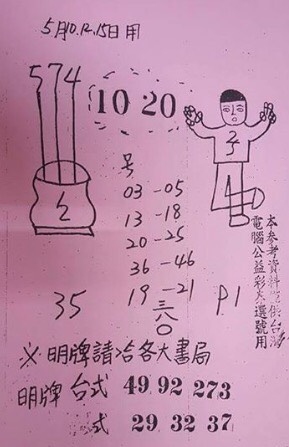 5月10.12.15日用
574
10 20
子
号
03-05
13-18
20-25
36-46
19-21
三八〇
35
P1
本參考資料僅供台灣
電腦公益彩券選號用
※明牌請洽各大書局
明牌 台式 49 92 273
式 29 32 37